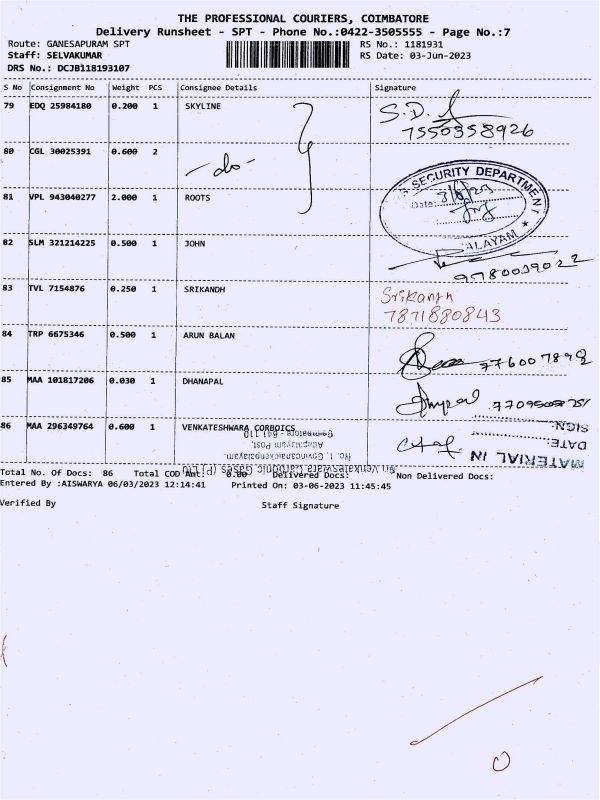 THE PROFESSIONAL COURIERS, COIMBATORE
Delivery Runsheet - SPT - Phone No.:0422-3505555 - Page No.:7
Route: GANESAPURAM SPT RS No.: 1181931
Staff: SELVAKUMAR RS Date: 03-Jun-2023
DRS No.: DCJB118193107
S No Consignment No Weight PCS Consignee Details Signature
79 EDQ 25984180 0.200 1 SKYLINE S.D.
7550358926
80 CGL 30025391 0.600 2 -do-
SECURITY DEPARTMENT
Date: 3/6/23
81 VPL 943040277 2.000 1 ROOTS
ALAYAM ★
82 SLM 321214225 0.500 1 JOHN
9780039022
83 TVL 7154876 0.250 1 SRIKANDH Srikanth
7871880843
84 TRP 6675346 0.500 1 ARUN BALAN
85 MAA 101817206 0.030 1 DHANAPAL
86 MAA 296349764 0.600 1 VENKATESHWARA CORBOICS
Coimbatore - 641 110
SIGN:
DATE:
MATERIAL IN
Sri Venkateswara Carbonic Gases (P) Ltd
Total No. Of Docs: 86 Total COD Amt: 0.00 Delivered Docs: Non Delivered Docs:
Entered By :AISWARYA 06/03/2023 12:14:41 Printed On: 03-06-2023 11:45:45
Verified By Staff Signature